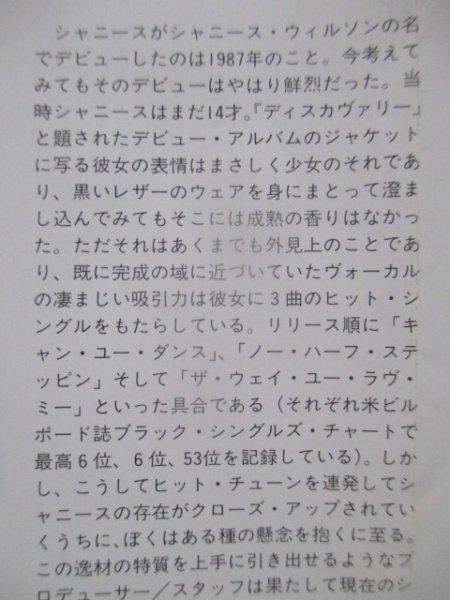 シャニースがシャニース・ウィルソンの名
でデビューしたのは1987年のこと。今考えて
みてもそのデビューはやはり鮮烈だった。当
時シャニースはまだ14才。『ディスカヴァリー』
と題されたデビュー・アルバムのジャケット
に写る彼女の表情はまさしく少女のそれであ
り、黒いレザーのウェアを身にまとって澄ま
し込んでみてもそこには成熟の香りはなかっ
た。ただそれはあくまでも外見上のことであ
り、既に完成の域に近づいていたヴォーカル
の凄まじい吸引力は彼女に3曲のヒット・シ
ングルをもたらしている。リリース順に「キ
ャン・ユー・ダンス」、「ノー・ハーフ・ステ
ッピン」そして「ザ・ウェイ・ユー・ラヴ・
ミー」といった具合である（それぞれ米ビル
ボード誌ブラック・シングルズ・チャートで
最高6位、6位、53位を記録している）。しか
し、こうしてヒット・チューンを連発してシ
ャニースの存在がクローズ・アップされてい
くうちに、ぼくはある種の懸念を抱くに至る。
この逸材の特質を上手に引き出せるようなプ
ロデューサー／スタッフは果たして現在のシ